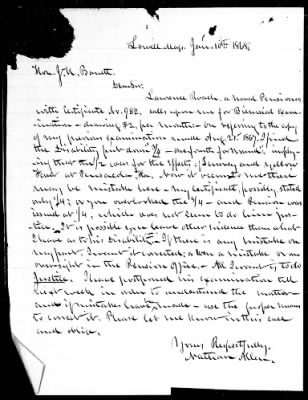 Lowell Mass. Jan. 10th 1868
Hon. J. H. Barrett
Dear Sir,
Lawrence Roach, a Naval Pensioner
with Certificate No. 982, calls upon me for Biennial Exam-
ination - drawing $2, per month - on referring to the copy
of my previous examination made Aug 20. 1867, I find
the Disability put down 3/4 - one fourth for wound, imply-
ing that the 1/2 was for the effects of Scurvey and yellow
Fever at Pensacola Fla. Now it seems to me there
may be mistake here - my certificate, possibly, stated
only 1/4; or you overlooked the 3/4 - and Pension was
issued at 1/4, which does not seem to do him jus-
tice. It is possible you have other evidence than what
I have as to his Disability - If there is any mistake on
my part, I want it corrected; or was a mistake or an
oversight in the Pension Office. All I want is to do
Justice. I have postponed his examination till
next week in order to understand the matter -
and if mistakes have made - use the proper means
to correct it. Please let me know in this case
and oblige.
Yours Respectfully,
Nathan Allen.